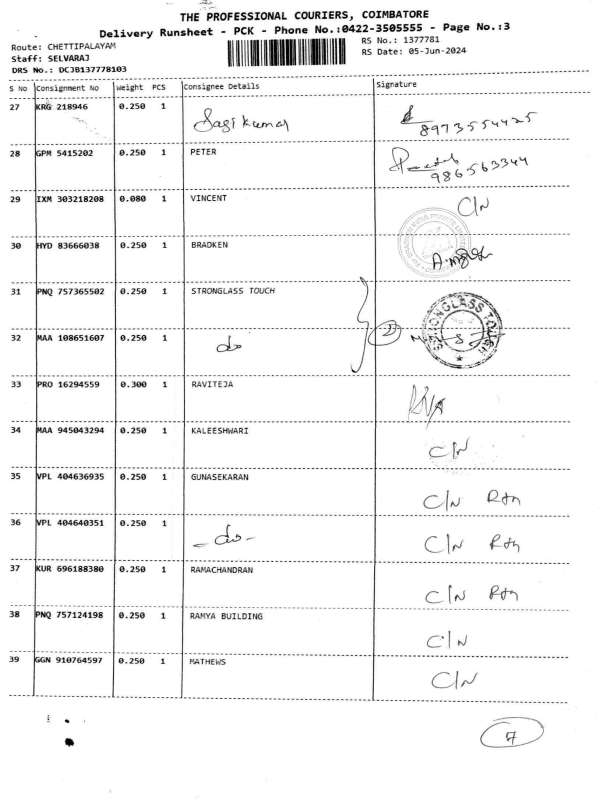 THE PROFESSIONAL COURIERS, COIMBATORE
Delivery Runsheet - PCK - Phone No.:0422-3505555 - Page No.:3
Route: CHETTIPALAYAM
RS No.: 1377781
Staff: SELVARAJ
RS Date: 05-Jun-2024
DRS No.: DCJB137778103
S No Consignment No Weight PCS Consignee Details Signature
27 KRG 218946 0.250 1 Sasikumar 8973554425
28 GPM 5415202 0.250 1 PETER 986563344
29 IXM 303218208 0.080 1 VINCENT C/N
30 HYD 83666038 0.250 1 BRADKEN
31 PNQ 757365502 0.250 1 STRONGLASS TOUCH
32 MAA 108651607 0.250 1 do 2 STRONGLASS TOUGH
33 PRO 16294559 0.300 1 RAVITEJA
34 MAA 945043294 0.250 1 KALEESHWARI C/N
35 VPL 404636935 0.250 1 GUNASEKARAN C/N Rtn
36 VPL 404640351 0.250 1 - do - C/N Rtn
37 KUR 696188380 0.250 1 RAMACHANDRAN C/N Rtn
38 PNQ 757124198 0.250 1 RAMYA BUILDING C/N
39 GGN 910764597 0.250 1 MATHEWS C/N
7